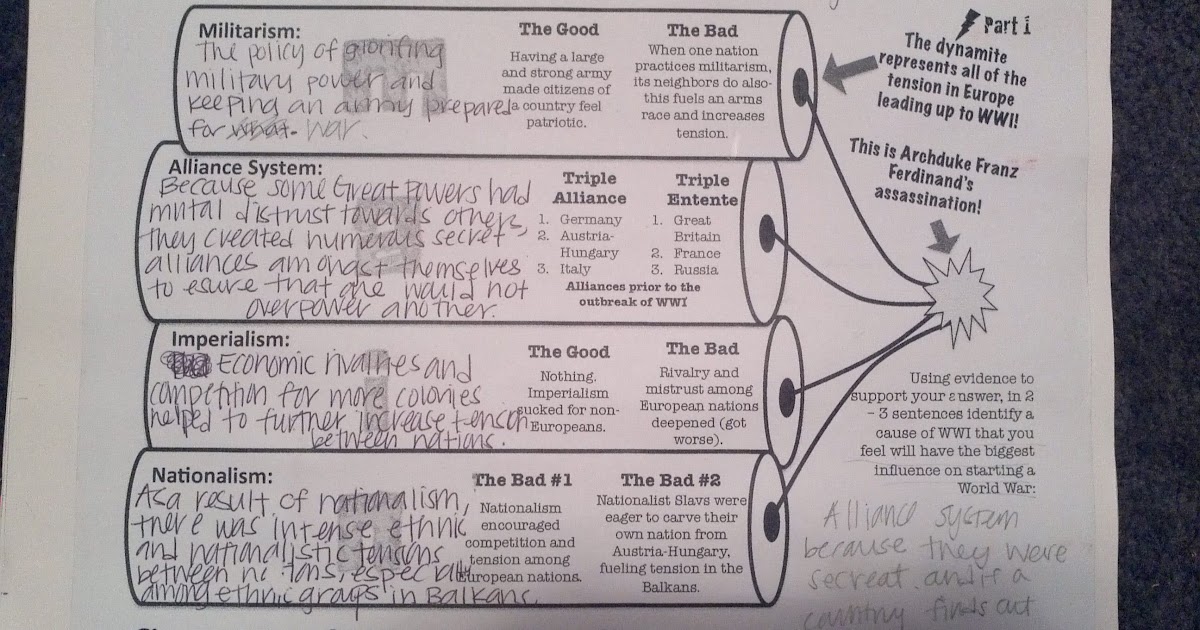 Militarism:
The policy of glorifing
military power and
keeping an army prepared
for what. war.
The Good
Having a large
and strong army
made citizens of
a country feel
patriotic.
The Bad
When one nation
practices militarism,
its neighbors do also-
this fuels an arms
race and increases
tension.
Part 1
The dynamite
represents all of the
tension in Europe
leading up to WWI!
This is Archduke Franz
Ferdinand's
assassination!
Alliance System:
Because some Great Powers had
mutal distrust towards others,
they created numerous secret
alliances amongst themselves
to esure that one would not
overpower another.
Triple
Alliance
1. Germany
2. Austria-
Hungary
3. Italy
Triple
Entente
1. Great
Britain
2. France
3. Russia
Alliances prior to the
outbreak of WWI
Imperialism:
Economic rivalries and
competition for more colonies
helped to further increase tension
between nations.
The Good
Nothing.
Imperialism
sucked for non-
Europeans.
The Bad
Rivalry and
mistrust among
European nations
deepened (got
worse).
Nationalism:
As a result of nationalism,
there was intense ethnic
and nationalistic tensions
between nations, especially
among ethnic groups in Balkans.
The Bad #1
Nationalism
encouraged
competition and
tension among
European nations.
The Bad #2
Nationalist Slavs were
eager to carve their
own nation from
Austria-Hungary,
fueling tension in the
Balkans.
Using evidence to
support your answer, in 2
– 3 sentences identify a
cause of WWI that you
feel will have the biggest
influence on starting a
World War:
Alliance system
because they were
secreat. and if a
country finds out